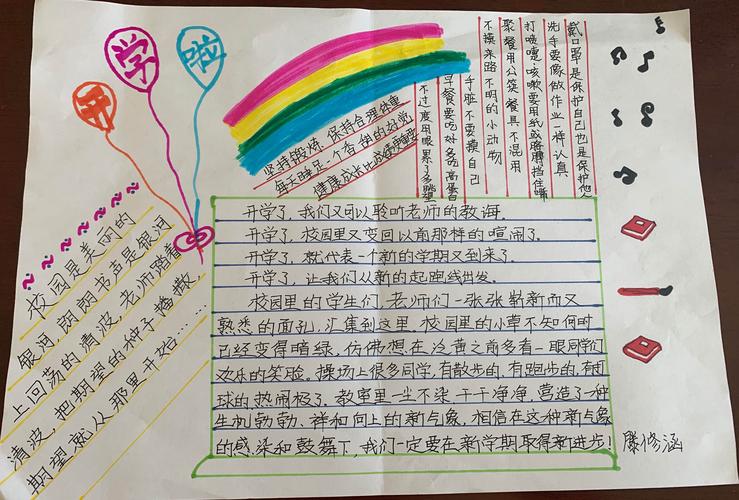 开学啦
戴口罩是保护自己也是保护他人
洗手要像做作业一样认真
打喷嚏、咳嗽要用纸或胳膊挡住嘴
聚餐用公筷餐具不混用
不摸来路不明的小动物
手脏不要摸自己
早餐要吃好多吃高蛋白
不过度用眼累了多眺望
坚持锻炼、保持合理体重
每天睡足一个香甜的好觉
健康成长比成绩更重要
校园是美丽的
银河,朗朗书声是银河
上回荡的清波,老师踏着
清波,把期望的种子播撒,
期望就从那里开始……
开学了,我们又可以聆听老师的教诲。
开学了,校园里又变回以前那样的喧闹了。
开学了,就代表一个新的学期又到来了。
开学了,让我们从新的起跑线出发。
校园里的学生们,老师们一张张崭新而又
熟悉的面孔,汇集到这里。校园里的小草不知何时
已经变得暗绿,仿佛想在泛黄之前多看一眼同学们
欢乐的笑脸。操场上很多同学,有散步的,有跑步的,有打
球的,热闹极了。教室里一尘不染,干干净净,营造了一种
生机勃勃、祥和向上的新气象,相信在这种新气象
的感染和鼓舞下,我们一定要在新学期取得新进步!
滕修涵